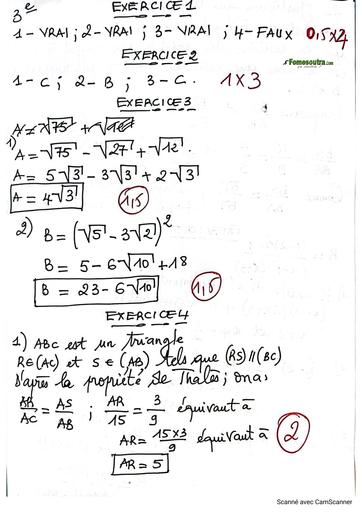 3e
EXERCICE 1
1-VRAI ; 2-VRAI ; 3-VRAI ; 4-FAUX 0,5x4
EXERCICE 2
Fomesoutra.com
1-C ; 2-B ; 3-C. 1x3
EXERCICE 3
1) A = √75 - √27 + √12.
A = 5√3 - 3√3 + 2√3
A = 4√3 1,5
2) B = (√5 - 3√2)²
B = 5 - 6√10 + 18
B = 23 - 6√10 1,5
EXERCICE 4
1) ABC est un triangle
R∈(AC) et S∈(AB) tels que (RS)//(BC)
D'après la propiété de Thalès ; on a:
AR/AC = AS/AB ; AR/15 = 3/9 équivaut à
AR = 15x3/9 équivaut à 2
AR = 5
Scanné avec CamScanner